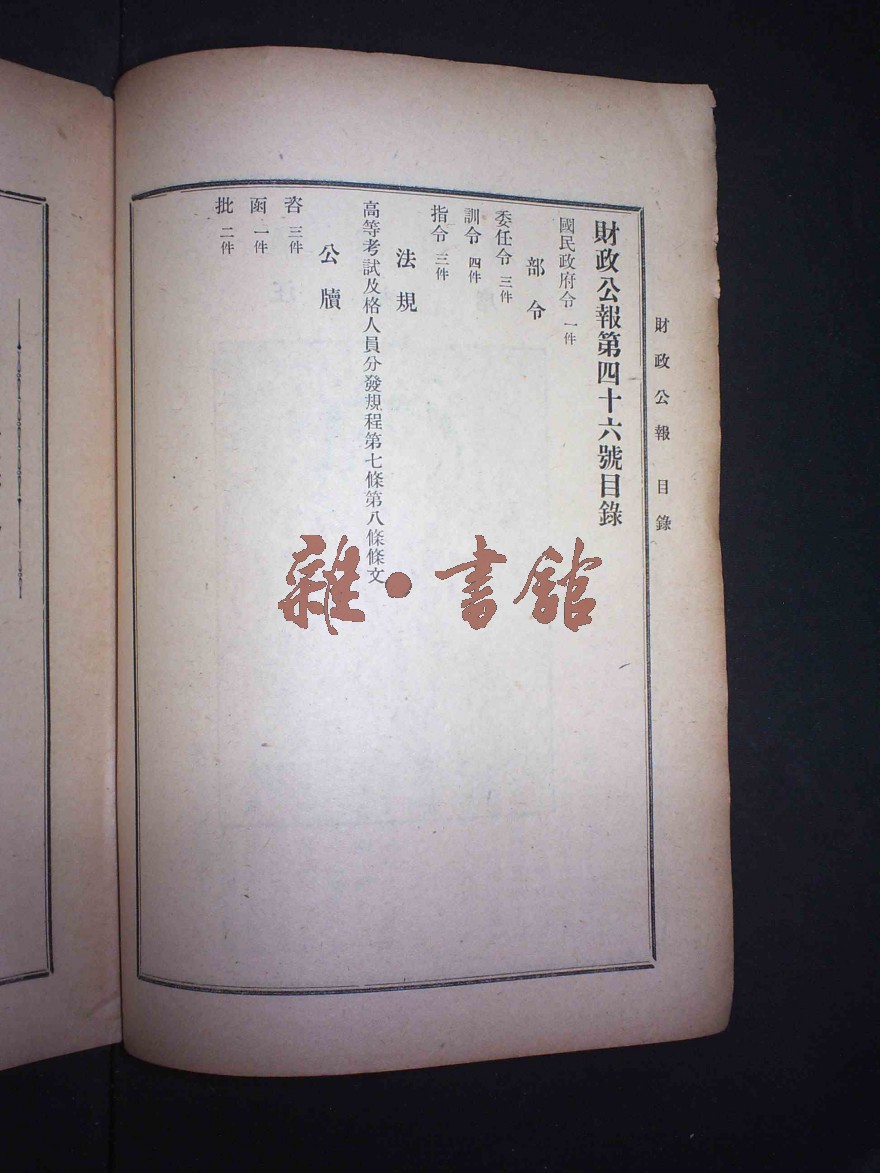 財政公報 目錄
財政公報第四十六號目錄
國民政府令 一件
部令
委任令 三件
訓令 四件
指令 三件
法規
高等考試及格人員分發規程第七條第八條條文
公牘
咨 三件
函 一件
批 二件
雜·書館